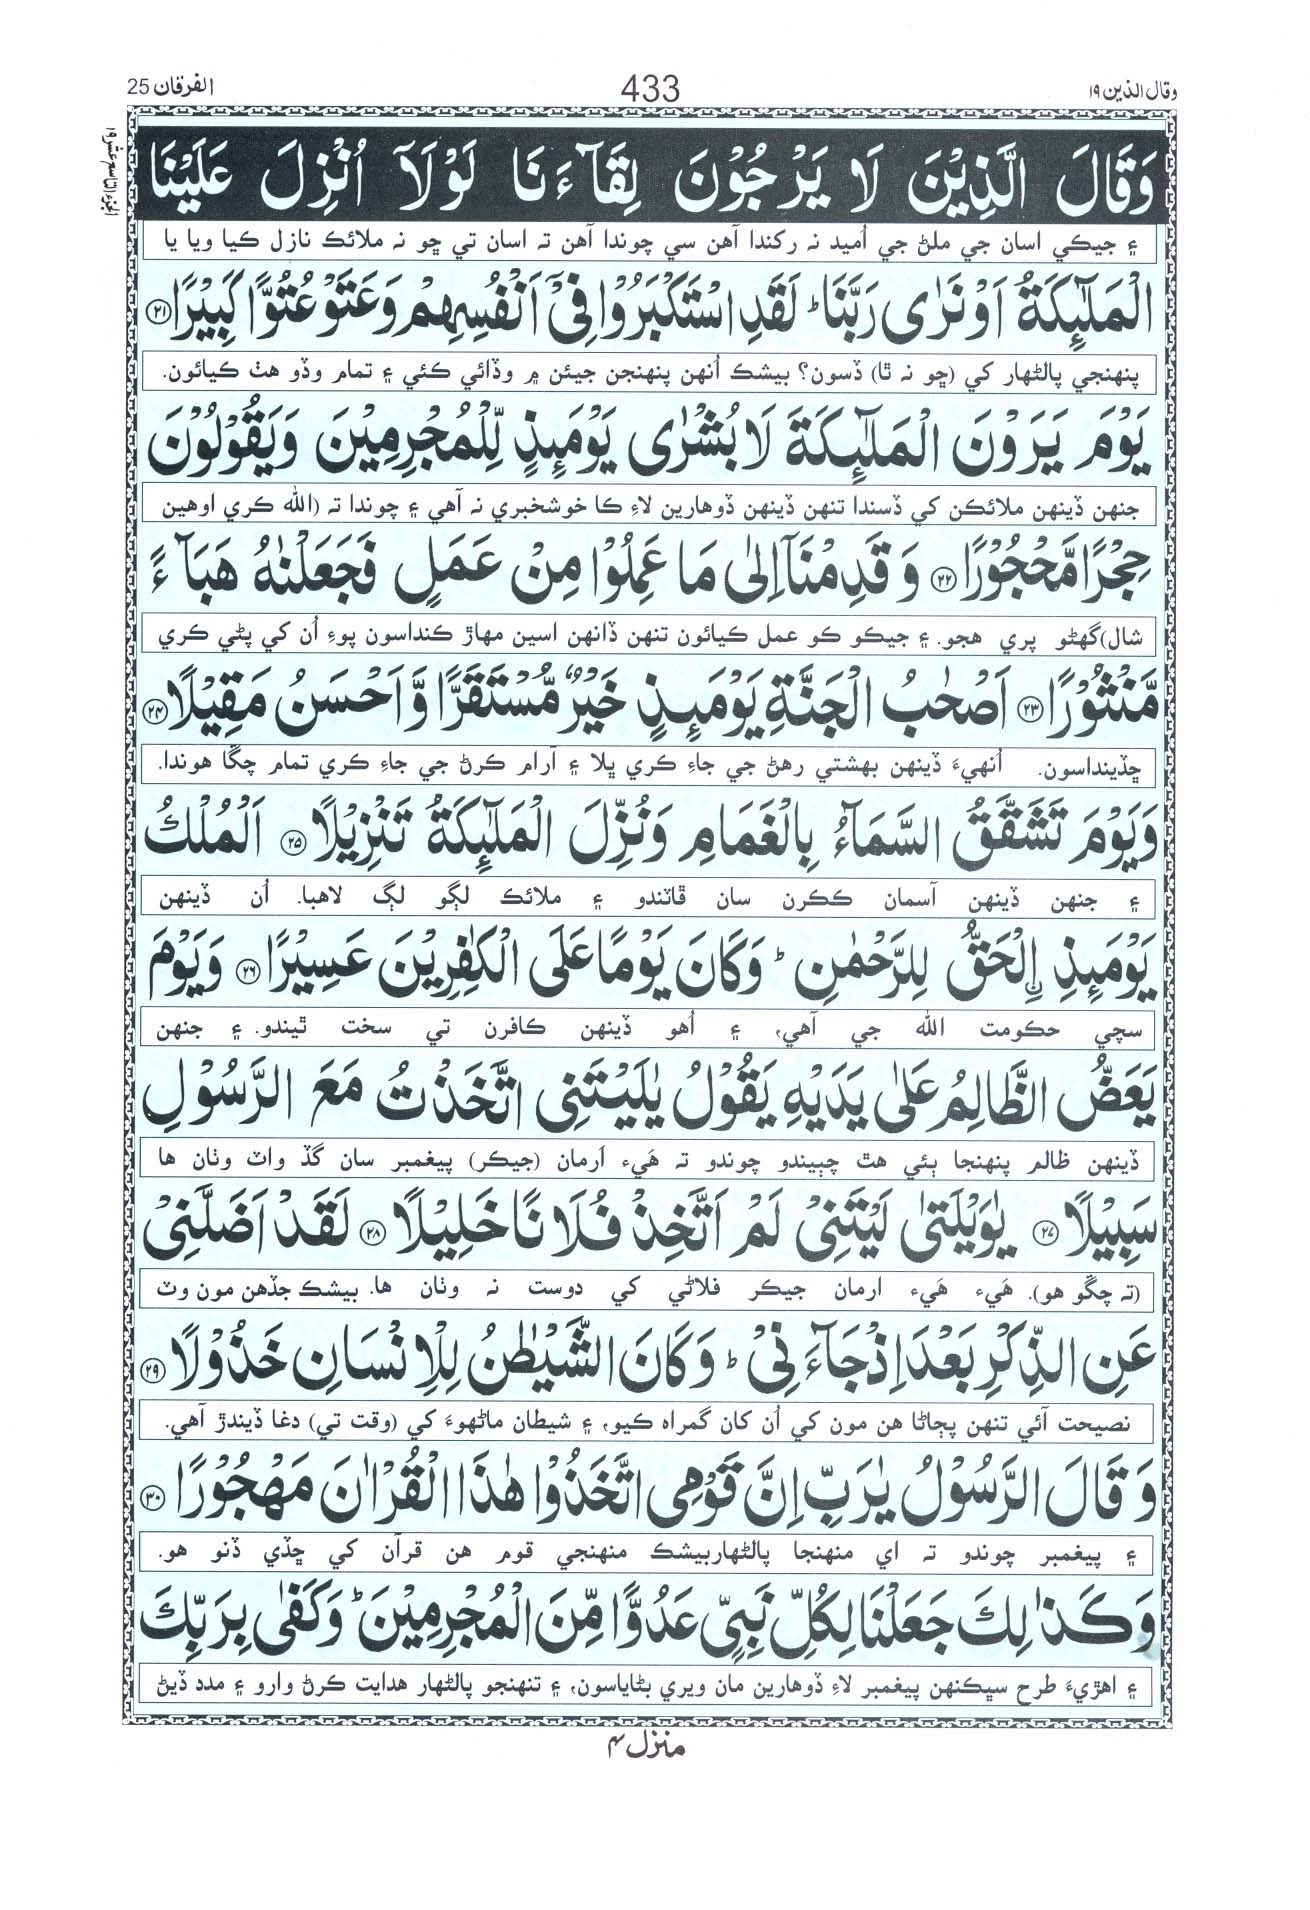 وقال الذين ١٩
433
الفرقان 25
الجزء التاسع عشر ١٩
وَقَالَ الَّذِيْنَ لَا يَرْجُوْنَ لِقَآءَنَا لَوْلَآ اُنْزِلَ عَلَيْنَا
۽ جيڪي اسان جي ملڻ جي اُميد نہ رکندا آهن سي چوندا آهن تہ اسان تي ڇو نہ ملائڪ نازل ڪيا ويا يا
الْمَلٰٓئِكَةُ اَوْ نَرٰى رَبَّنَا ؕ لَقَدِ اسْتَكْبَرُوْا فِيْٓ اَنْفُسِهِمْ وَعَتَوْ عُتُوًّا كَبِيْرًا ۝٢١
پنهنجي پالڻهار کي (ڇو نہ ٿا) ڏسون؟ بيشڪ اُنهن پنهنجن جيئن ۾ وڏائي ڪئي ۽ تمام وڏو هٺ ڪيائون.
يَوْمَ يَرَوْنَ الْمَلٰٓئِكَةَ لَا بُشْرٰى يَوْمَئِذٍ لِّلْمُجْرِمِيْنَ وَيَقُوْلُوْنَ
جنهن ڏينهن ملائڪن کي ڏسندا تنهن ڏينهن ڏوهارين لاءِ ڪا خوشخبري نہ آهي ۽ چوندا تہ (الله ڪري اوهين
حِجْرًا مَّحْجُوْرًا ۝٢٢ وَقَدِمْنَآ اِلٰى مَا عَمِلُوْا مِنْ عَمَلٍ فَجَعَلْنٰهُ هَبَآءً
شال)گهڻو پري هجو. ۽ جيڪو ڪو عمل ڪيائون تنهن ڏانهن اسين مهاڙ ڪنداسون پوءِ اُن کي پٽي ڪري
مَّنْثُوْرًا ۝٢٣ اَصْحٰبُ الْجَنَّةِ يَوْمَئِذٍ خَيْرٌ مُّسْتَقَرًّا وَّاَحْسَنُ مَقِيْلًا ۝٢٤
ڇڏينداسون. اُنهيءَ ڏينهن بهشتي رهڻ جي جاءِ ڪري ڀلا ۽ آرام ڪرڻ جي جاءِ ڪري تمام چڱا هوندا.
وَيَوْمَ تَشَقَّقُ السَّمَآءُ بِالْغَمَامِ وَنُزِّلَ الْمَلٰٓئِكَةُ تَنْزِيْلًا ۝٢٥ اَلْمُلْكُ
۽ جنهن ڏينهن آسمان ڪڪرن سان ڦاٽندو ۽ ملائڪ لڳو لڳ لاهبا. اُن ڏينهن
يَوْمَئِذِ ࣙالْحَقُّ لِلرَّحْمٰنِ ؕ وَكَانَ يَوْمًا عَلَى الْكٰفِرِيْنَ عَسِيْرًا ۝٢٦ وَيَوْمَ
سچي حڪومت الله جي آهي، ۽ اُهو ڏينهن ڪافرن تي سخت ٿيندو. ۽ جنهن
يَعَضُّ الظَّالِمُ عَلٰى يَدَيْهِ يَقُوْلُ يٰلَيْتَنِى اتَّخَذْتُ مَعَ الرَّسُوْلِ
ڏينهن ظالم پنهنجا ٻئي هٿ چٻيندو چوندو تہ هَيءِ اَرمان (جيڪر) پيغمبر سان گڏ واٽ وٺان ها
سَبِيْلًا ۝٢٧ يٰوَيْلَتٰى لَيْتَنِيْ لَمْ اَتَّخِذْ فُلَانًا خَلِيْلًا ۝٢٨ لَقَدْ اَضَلَّنِيْ
(تہ چڱو هو). هَيءِ هَيءِ ارمان جيڪر فلاڻي کي دوست نہ وٺان ها. بيشڪ جڏهن مون وٽ
عَنِ الذِّكْرِ بَعْدَ اِذْ جَآءَنِيْ ؕ وَكَانَ الشَّيْطٰنُ لِلْاِنْسَانِ خَذُوْلًا ۝٢٩
نصيحت آئي تنهن پڄاڻا هن مون کي اُن کان گمراه ڪيو، ۽ شيطان ماڻهوءَ کي (وقت تي) دغا ڏيندڙ آهي.
وَقَالَ الرَّسُوْلُ يٰرَبِّ اِنَّ قَوْمِى اتَّخَذُوْا هٰذَا الْقُرْاٰنَ مَهْجُوْرًا ۝٣٠
۽ پيغمبر چوندو تہ اي منهنجا پالڻهاربيشڪ منهنجي قوم هن قرآن کي ڇڏي ڏنو هو.
وَكَذٰلِكَ جَعَلْنَا لِكُلِّ نَبِيٍّ عَدُوًّا مِّنَ الْمُجْرِمِيْنَ ؕ وَكَفٰى بِرَبِّكَ
۽ اهڙيءَ طرح سڀڪنهن پيغمبر لاءِ ڏوهارين مان ويري بڻاياسون، ۽ تنهنجو پالڻهار هدايت ڪرڻ وارو ۽ مدد ڏيڻ
منزل ٤